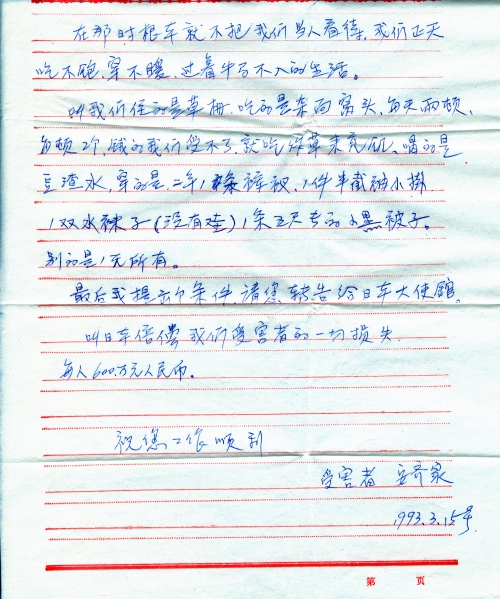 在那时根车就不把我们当人看待，我们正天
吃不饱，穿不暖，过着牛马不入的生活。
叫我们住的是草棚，吃的是杂面窝头，每天两顿，
每顿2个，饿的我们受不了，就吃炸草来充饥，喝的是
豆渣水，穿的是二年1条裤衩，1件半截袖小掛
1双水袜子（没有鞋）1条五尺长的小黑被子。
别的是1无所有。
最后我提出个条件，请您转告给日车大使馆，
叫日车倍偿我们受害者的一切损失
每人600万元人民币。
祝您工作顺利
受害者 安奇家
1993.3.15号
第 页